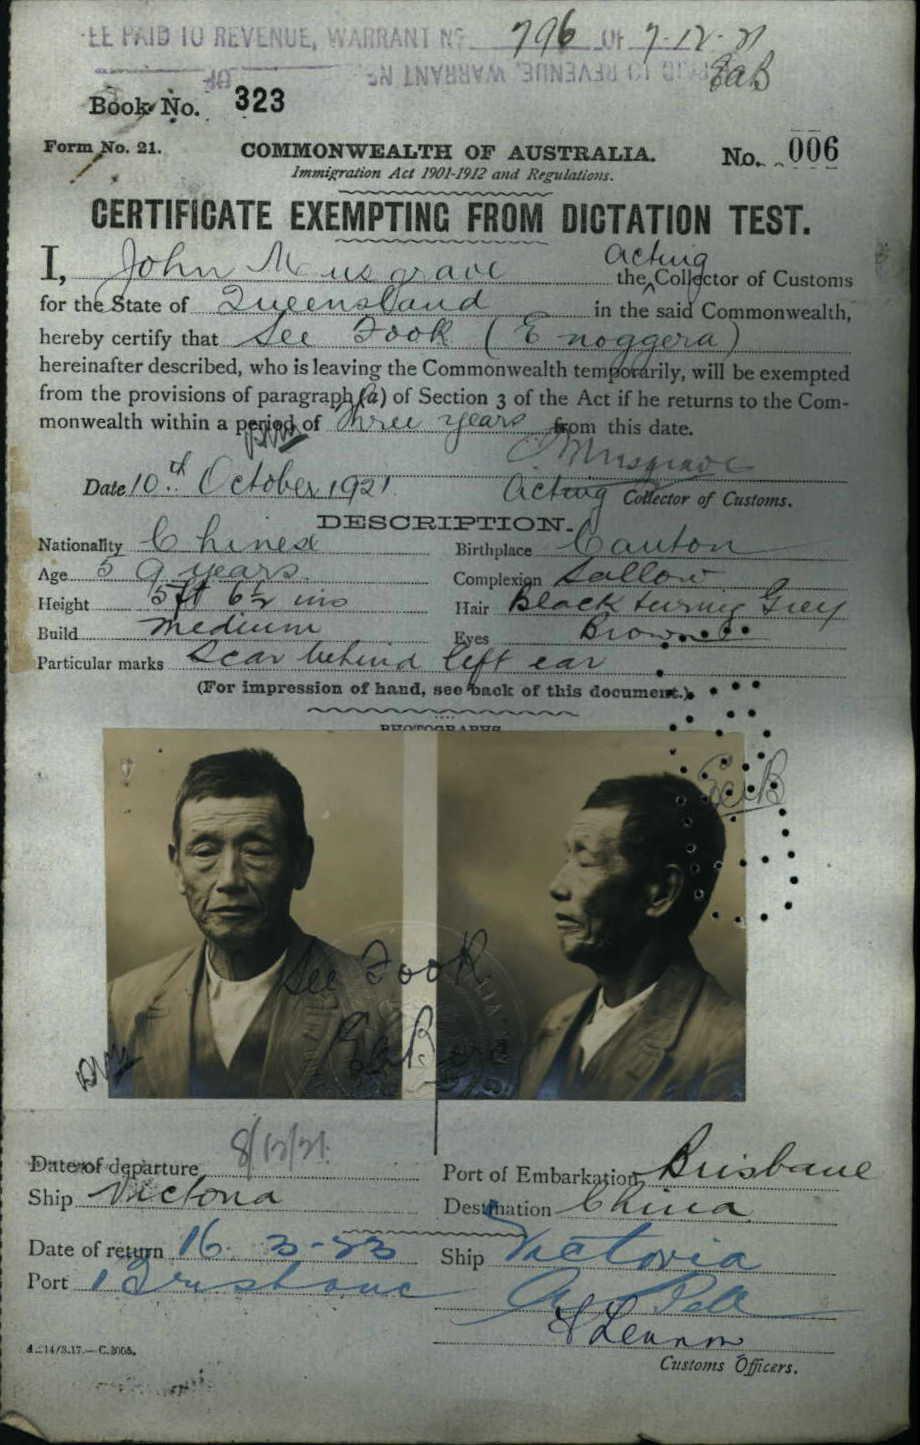 EE PAID TO REVENUE, WARRANT No 796 OF 7-12-21
PAID TO REVENUE, WARRANT No OF
EaB
Book No. 323
Form No. 21.
COMMONWEALTH OF AUSTRALIA.
No. 006
Immigration Act 1901-1912 and Regulations.
CERTIFICATE EXEMPTING FROM DICTATION TEST.
I, John Musgrave the Acting Collector of Customs
for the State of Queensland in the said Commonwealth,
hereby certify that See Fook (Enoggera)
hereinafter described, who is leaving the Commonwealth temporarily, will be exempted
from the provisions of paragraph (a) of Section 3 of the Act if he returns to the Com-
monwealth within a period of three years from this date.
J Musgrave
Date 10th October 1921
Acting Collector of Customs.
DESCRIPTION.
Nationality Chinese Birthplace Canton
Age 59 years Complexion Sallow
Height 5ft 6½ ins Hair Black turning Grey
Build medium Eyes Brown
Particular marks Scar behind left ear
(For impression of hand, see back of this document.)
PHOTOGRAPHS
EaB
See Fook
Date of departure 8/12/21 Port of Embarkation Brisbane
Ship Victoria Destination China
Date of return 16-3-23 Ship Victoria
Port Brisbane
Customs Officers.